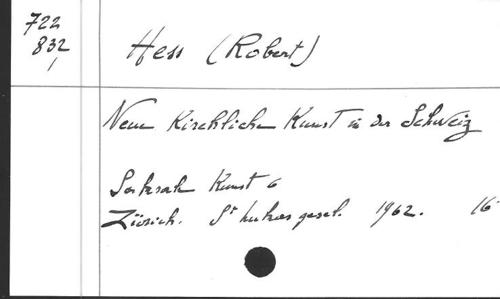 722
832
1
Hess (Robert)
Neue Kirchliche Kunst in der Schweiz
Kunst 6
Zürich. St Lukas gesel. 1962. 16